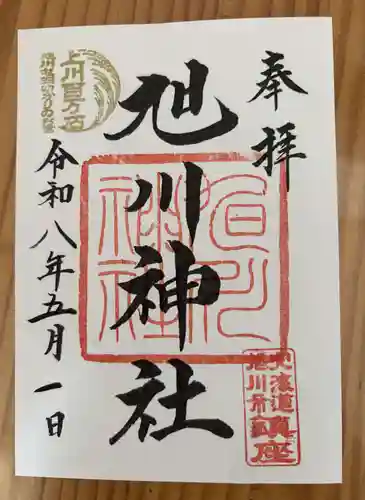 奉拝
旭川神社
令和八年五月一日
上川百万石
旭川神社
北海道
旭川市
鎮座